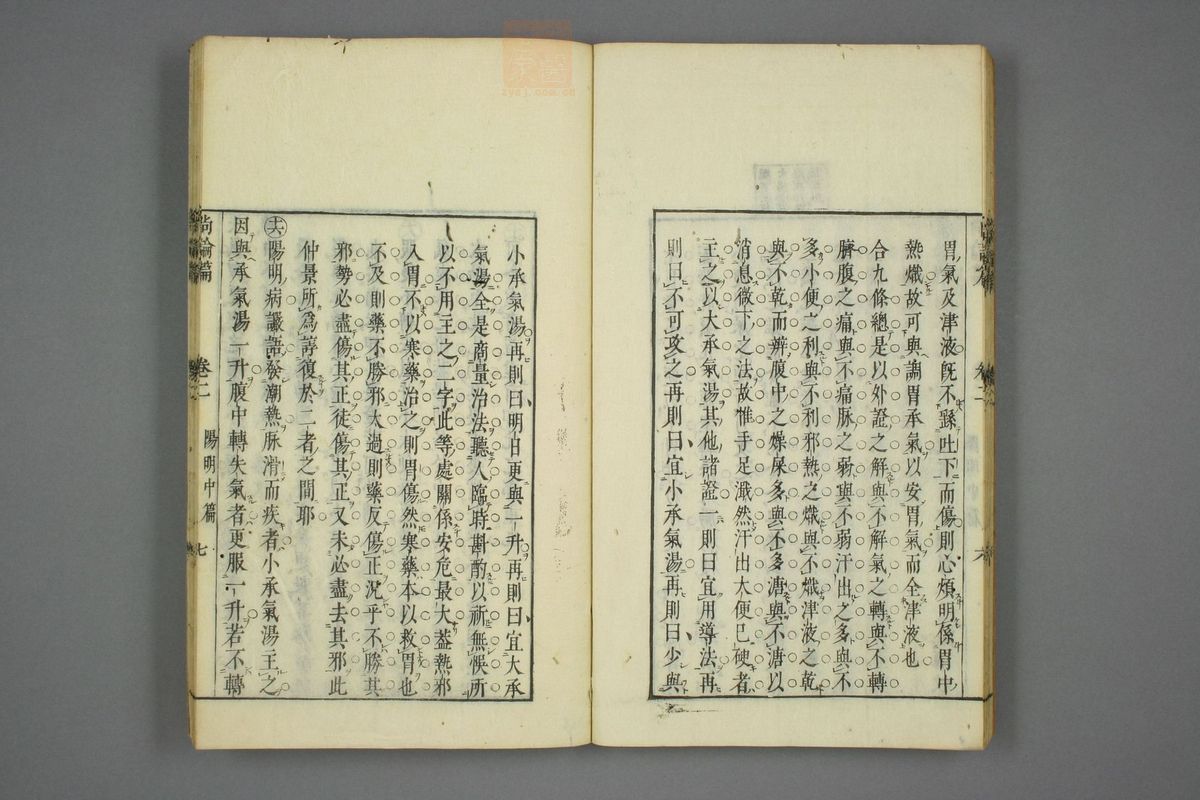 胃氣及津液旣不繇吐下而傷則心煩明係胃中
熱熾故可與調胃承氣以安胃氣而全津液也
合九條總是以外證之解與不解氣之轉與不轉
臍腹之痛與不痛脉之弱與不弱汗出之多與不
多小便之利與不利邪熱之熾與不熾津液之乾
與不乾而辨腹中之燥屎多與不多溏與不溏以
消息微下之法故惟手足濈然汗出大便巳硬者
主之以大承氣湯其他諸證一則曰宜用導法再
則曰不可攻之再則曰宜小承氣湯再則曰少與
卷二
六
小承氣湯再則曰明日更與一升再則曰宜大承
氣湯全是商量治法聽人臨時斟酌以祈無悞所
以不用主之二字此等處關係安危最大葢熱邪
入胃不以寒藥治之則胃傷然寒藥本以救胃也
不及則藥不勝邪太過則藥反傷正況乎不勝其
邪勢必盡傷其正徒傷其正又未必盡去其邪此
仲景所爲諄復於二者之間耶
陽明病讝語發潮熱脉滑而疾者小承氣湯主之
因與承氣湯一升腹中轉失氣者更服一升若不轉
尚論篇 卷二 陽明中篇 七
zysj.com.cn